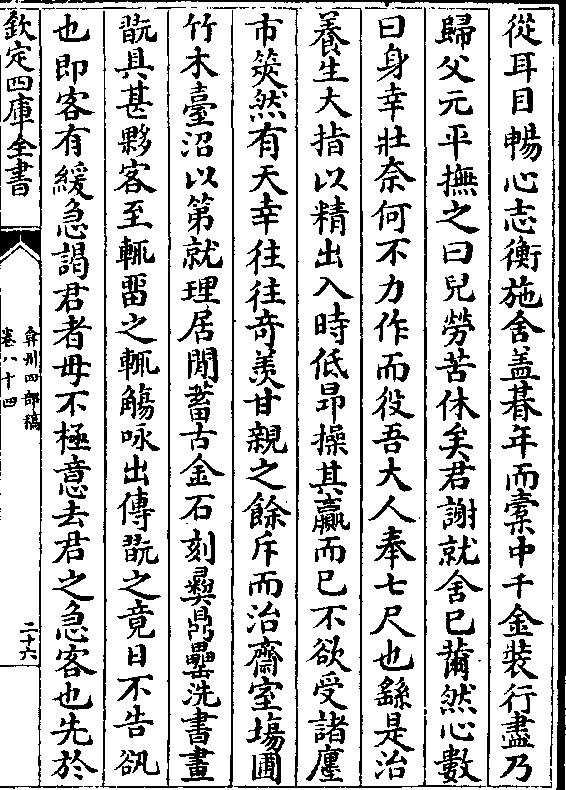 從耳目暢心志衡施舍盖朞年而橐中千金裝行盡乃
歸父元平撫之曰兒勞苦休矣君謝就舍已薾然心數
曰身幸壯奈何不力作而役吾大人奉七尺也繇是治
養生大指以精出入時低昻操其贏而已不欲受諸廛
市筴然有天幸往往奇羨甘親之餘斥而治齋室塲圃
竹木臺沼以第就理居閒蓄古金石刻彛鼎罍洗書畫
翫具甚夥客至輒畱之輒觴咏出傳翫之竟日不告
也即客有緩急謁君者毋不極意去君之急客也先於
欽定四庫全書
弇州四部稿
卷八十四
二十六